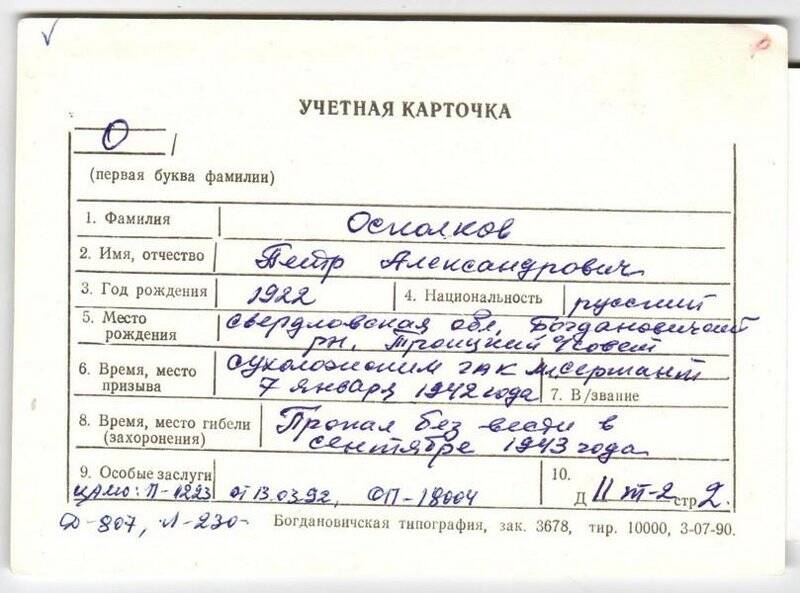 УЧЕТНАЯ КАРТОЧКА
О
(первая буква фамилии)
1. Фамилия Осколков
2. Имя, отчество Петр Александрович
3. Год рождения 1922 4. Национальность русский
5. Место рождения свердловская обл, Богдановичский
рн, Троицкий совет
6. Время, место призыва сухоложским РВК
7 января 1942 года
7. В/звание мл. сержант
8. Время, место гибели (захоронения) Пропал без вести в
сентябре 1943 года
9. Особые заслуги
10.
ЦАМО: П-1223 от 13.03.92, ОП-18004 Д II т-2 стр 2.
Ф-807, Л-230-
Богдановичская типография, зак. 3678, тир. 10000, 3-07-90.